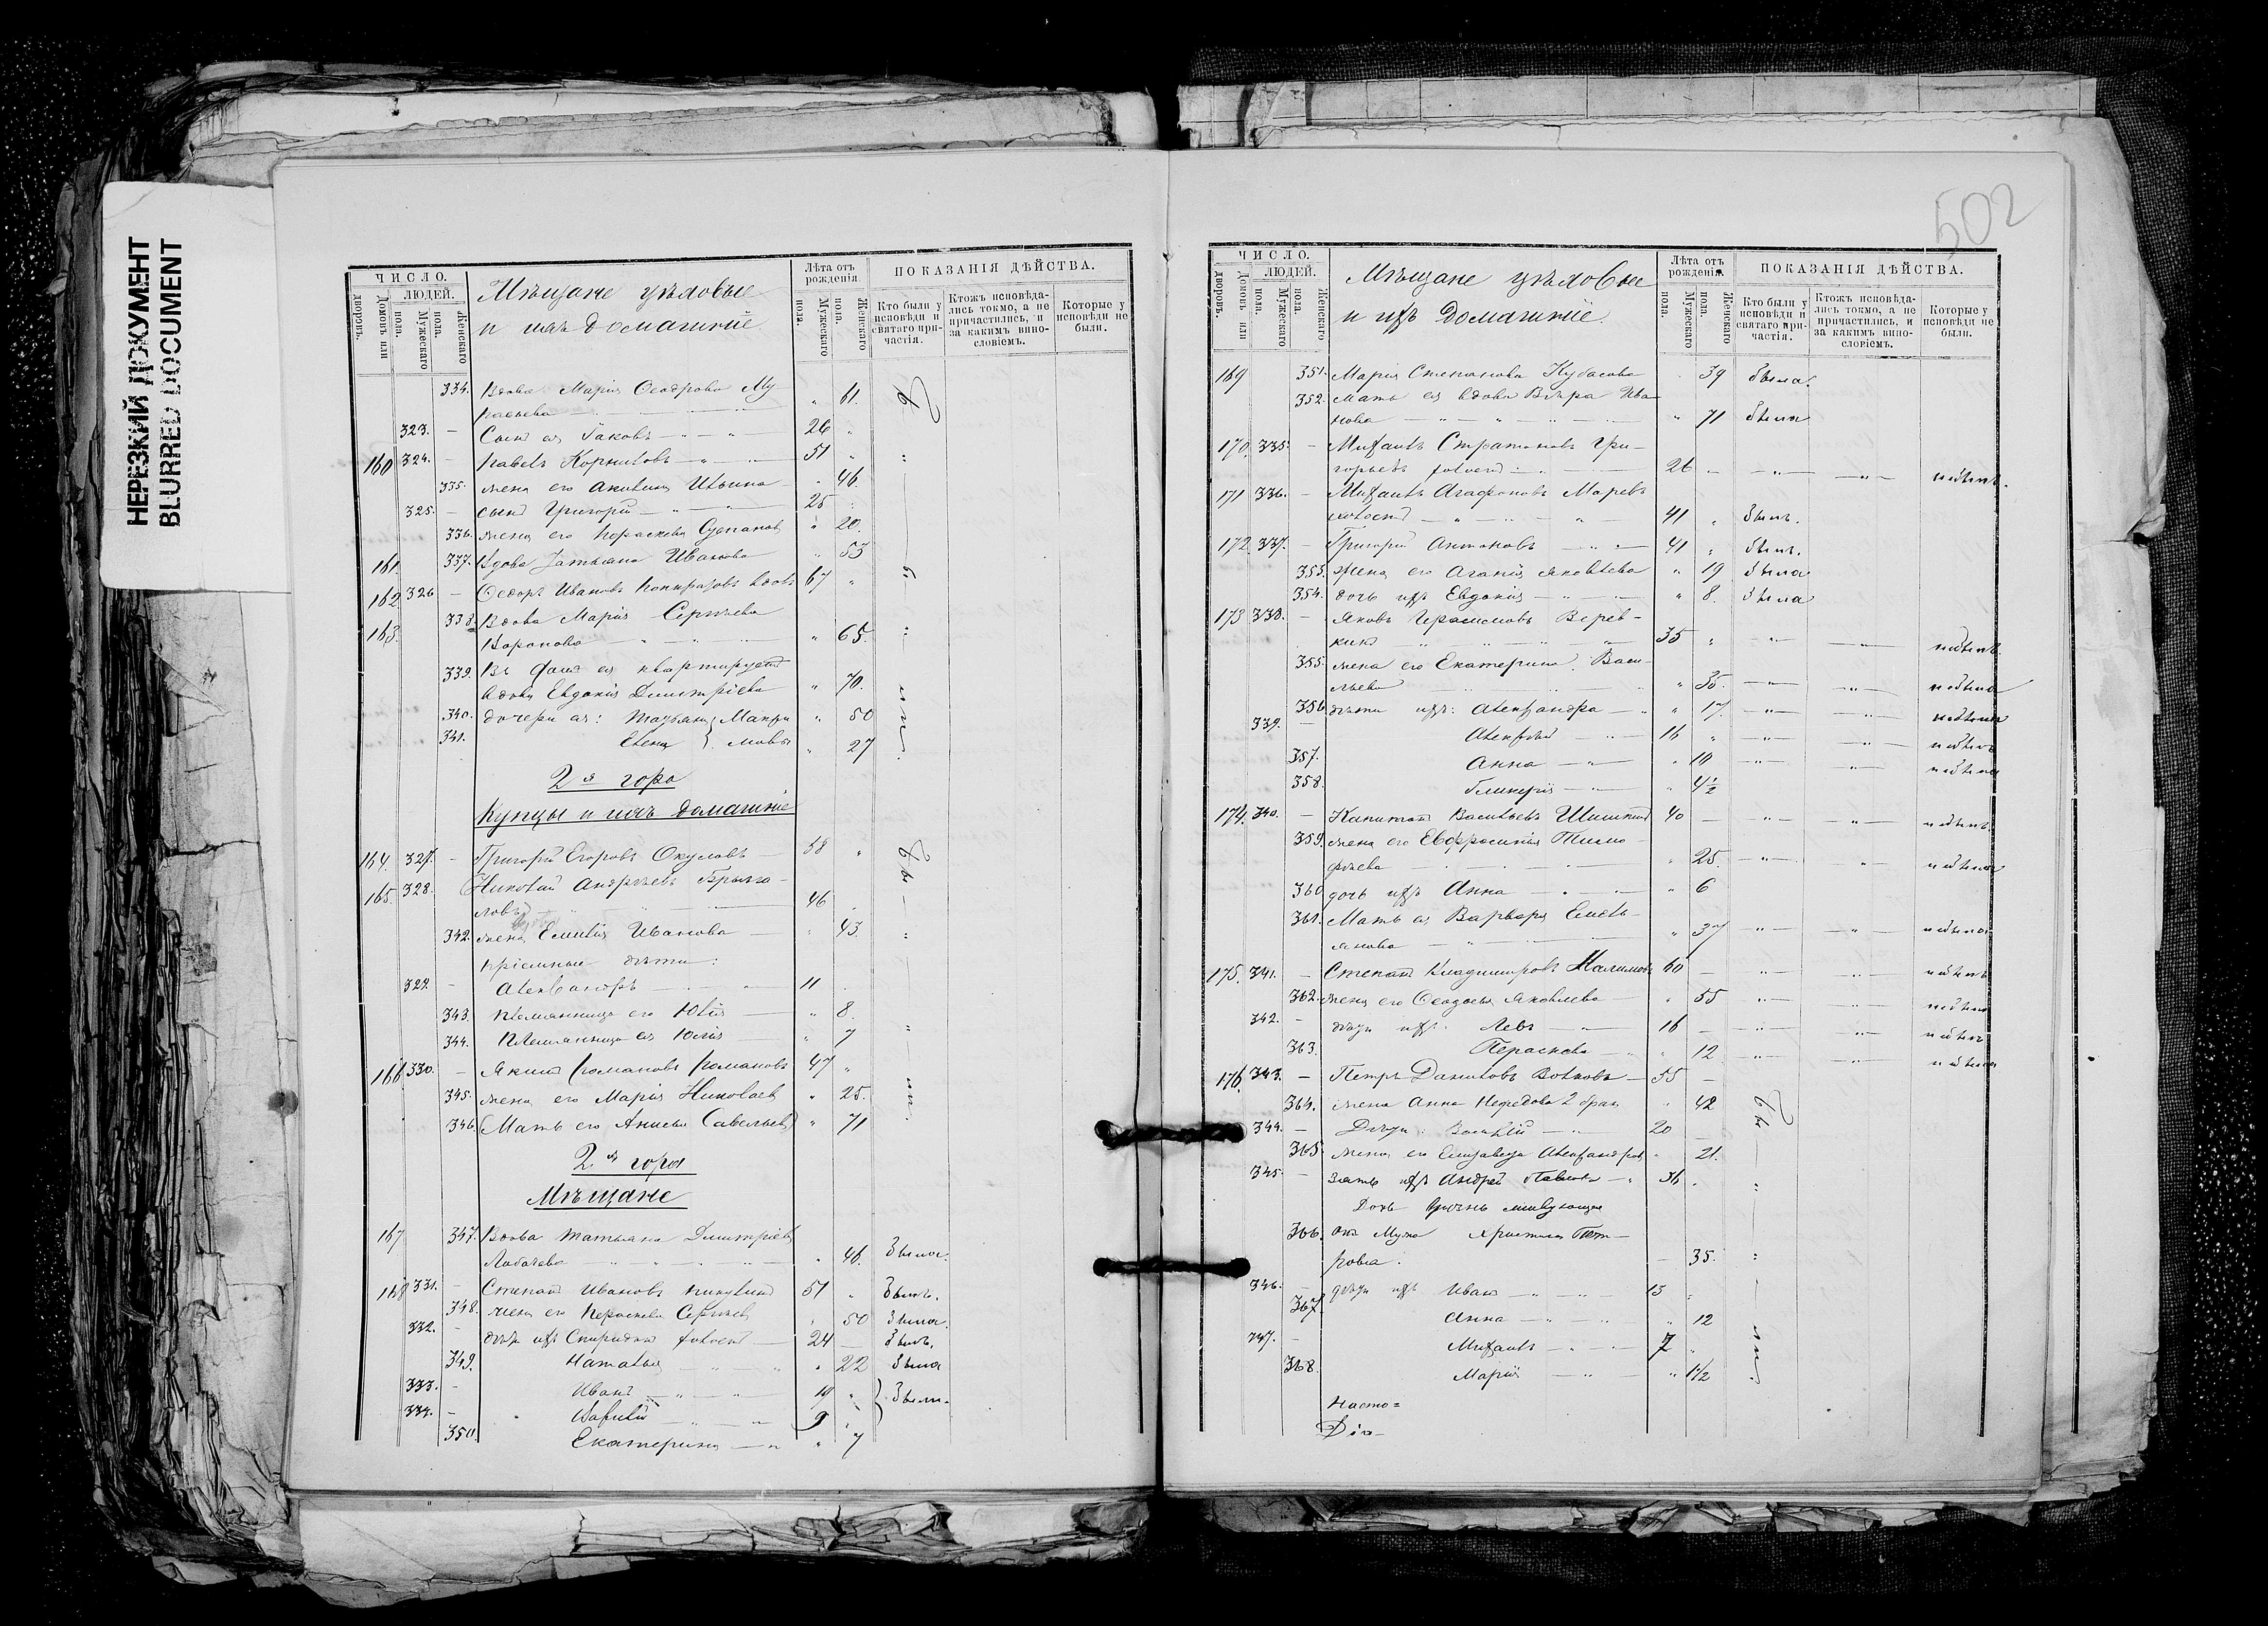 НЕРЕЗКИЙ ДОКУМЕНТ
BLURRED DOCUMENT
ЧИСЛО.
ЛЮДЕЙ.
Домовъ или дворовъ.
Мужескаго пола.
Женскаго пола.
Мѣщане цѣховые
и ихъ домашніе
Лѣта отъ рожденія
Мужескаго пола.
Женскаго пола.
ПОКАЗАНІЯ ДѢЙСТВА.
Кто были у исповѣди и святаго причастія.
Ктожъ исповѣдались токмо, а не причастились, и за какимъ винословіемъ.
Которые у исповѣди не были.
334. Вдова Марія Ѳеодрова
" 61.
323. — Сынъ ея Іаковъ — " — " 26 "
160 324. — Павелъ Корниловъ — " — 51 "
335. жена его Акилина Ильина — " 46.
325. — сынъ Григорій — " — " 25
336. жена его Параскева Степанов " 20.
161. 337. Вдова Татьяна Иванова " 53
162 326 — Ѳеодоръ Ивановъ Понкратовъ вдовъ 67 "
163. 338. Вдова Марія Сергѣева
Воронова " " " 65.
339. Въ домѣ ея квартируетъ
вдова Евдокія Димитріева " 70.
340. дочери ея: Татьяна " 50
341. Елена " 27
2я гора
Купцы и ихъ домашніе
164. 327. — Григорій Егоровъ Окуловъ — 58 "
165. 328. Николай Андреевъ Брызга-
ловъ 46
342. жена Емилія Иванова — " 43.
пріемныи дѣти:
322 — Александръ — " 11
343. племянница его Юлія — " 8.
344. племянница ея Юлія — " 7
166 330. — Якимъ Романовъ Романовъ 47 "
345. жена его Марія Николаев " 25.
346. Мать его Анисья Савельев " 71
2я гора
Мѣщане
167 347. Вдова Татьяна Димитріев
Лобачева — " 46. была
168 331. — Степанъ Ивановъ 51 " былъ.
348. жена его Параскева Сергѣев " 50 была.
332. — дѣти ихъ Спиридонъ холостъ — 24 — былъ.
349. Наталья — " — " 22 была
333. — Иванъ — " — " "
334. — Василій " — " 9 " были.
350. Екатерина — " " 7
502
ЧИСЛО.
ЛЮДЕЙ.
Домовъ или дворовъ.
Мужескаго пола.
Женскаго пола.
Мѣщане цѣховые
и ихъ домашніе.
Лѣта отъ рожденія.
Мужескаго пола.
Женскаго пола.
ПОКАЗАНІЯ ДѢЙСТВА.
Кто были у исповѣди и святаго причастія.
Ктожъ исповѣдались токмо, а не причастились, и за какимъ винословіемъ.
Которые у исповѣди не были.
169 351. Марія Степанова Кубасова 39 была.
352. Мать ея вдова Вѣра Ива-
нова — " — " " 71 была
170. 335. — Михаилъ Стратоновъ Гри-
горьевъ холостъ — " — 26 — — " — — " — небылъ.
171 336. — Михаилъ Агафоновъ Маревъ
холостъ — " — " — 41 " былъ.
172 337. — Григорій Антоновъ — " — 41 " былъ.
353. жена его Агапія Яковлева " 19 была
354. дочь ихъ Евдокія — " — " 8. была
173 338. — Яковъ Герасимовъ Верев-
кинъ " " " 35 " — " — — " — небылъ
355. жена его Екатерина Васи-
льева " 35. — " — — " — небыла
356 дѣти ихъ: Александра — " " 17. — " — — " — небыла
339. Алексѣй — " — 16 " — " — — " — небылъ
357. Анна — " — " 10 — " — — " — небыла
358. Гликерія — " — " 4½
174. 340. — Капитонъ Васильевъ Шишкинъ 40 — — " — — " — небылъ.
359. жена его Евфросинія Тимо-
фѣева " 25. — " — " небыла
360 дочь ихъ Анна — " — " 6
361. Мать ея Варвара Емель-
янова — " — " 37 — " — — " — небыла
175. 341. — Степанъ Владимировъ 60 — " " небылъ
362. жена его Ѳеодосья Яковлева — " 55 " — " небыла
342. — дѣти ихъ: Левъ — " — 16 — — " — " небылъ
363. Пераскева — " " 12 " — " небыла
176. 343. — Петръ Даниловъ Волковъ — 55 —
364. жена Анна Нефедова 2 брак " 42
344. — Дѣти: Василій — " — 20
365. жена его Елизавета Александров " 21.
345. — Зять ихъ Андрей Павловъ — " 36 "
Дочь
366. отъ мужа Христина Пет-
рова. — 35. "
346. — дѣти ихъ Иванъ — " — " 13
367. Анна — " — " " 12
347. — Михаилъ — " — 7
368. Марія — " — " 1½
Насто=
Діа-